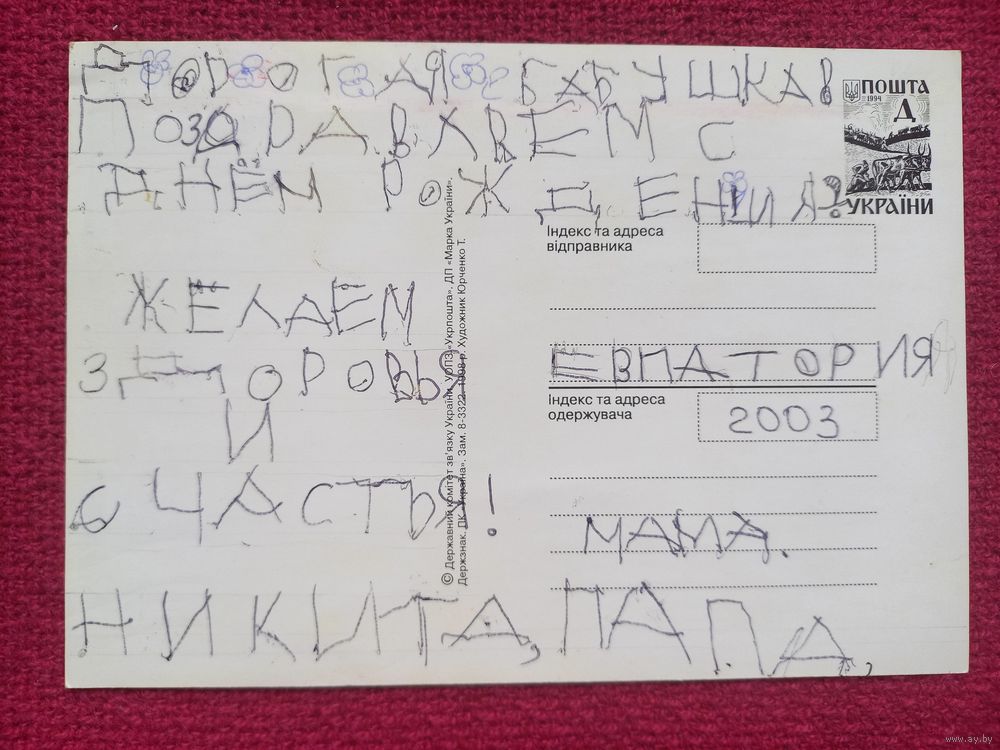 ДОРОГАЯ БАБУШКА!
ПОЗДРАВЛЯЕМ С
ДНЁМ РОЖДЕНИЯ!
ЖЕЛАЕМ
ЗДОРОВЬЯ
И
СЧАСТЬЯ!
НИКИТА, ПАПА,
МАМА.
© Державний комітет зв'язку України. УОПЗ «Укрпошта». ДП «Марка України».
Держзнак. ДК «Україна». Зам. 8-3322. 1998 р. Художник Юрченко Т.
ПОШТА
1994
Д
УКРАЇНИ
Індекс та адреса
відправника
ЕВПАТОРИЯ
Індекс та адреса
одержувача
2003
www.ay.by